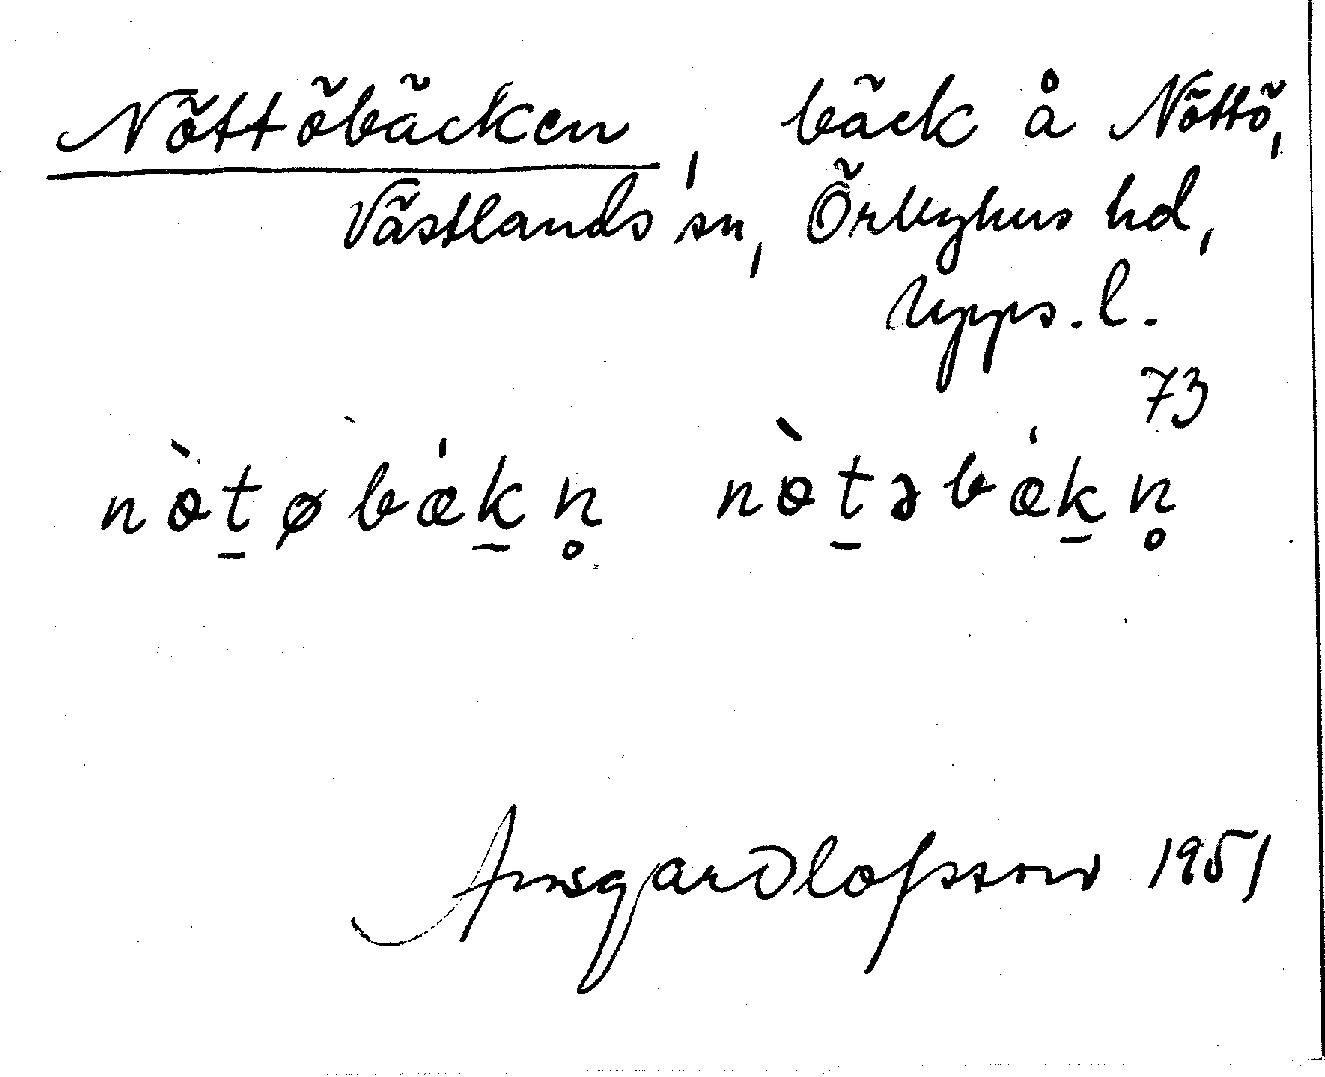 Nöttöbäcken, bäck å Nöttö,
Västlands sn, Örbyhus hd,
Upps. l.
73
nòt̠øbǽk̠n̥ nòt̠əbǽk̠n̥
Ansgar Olofsson 1951